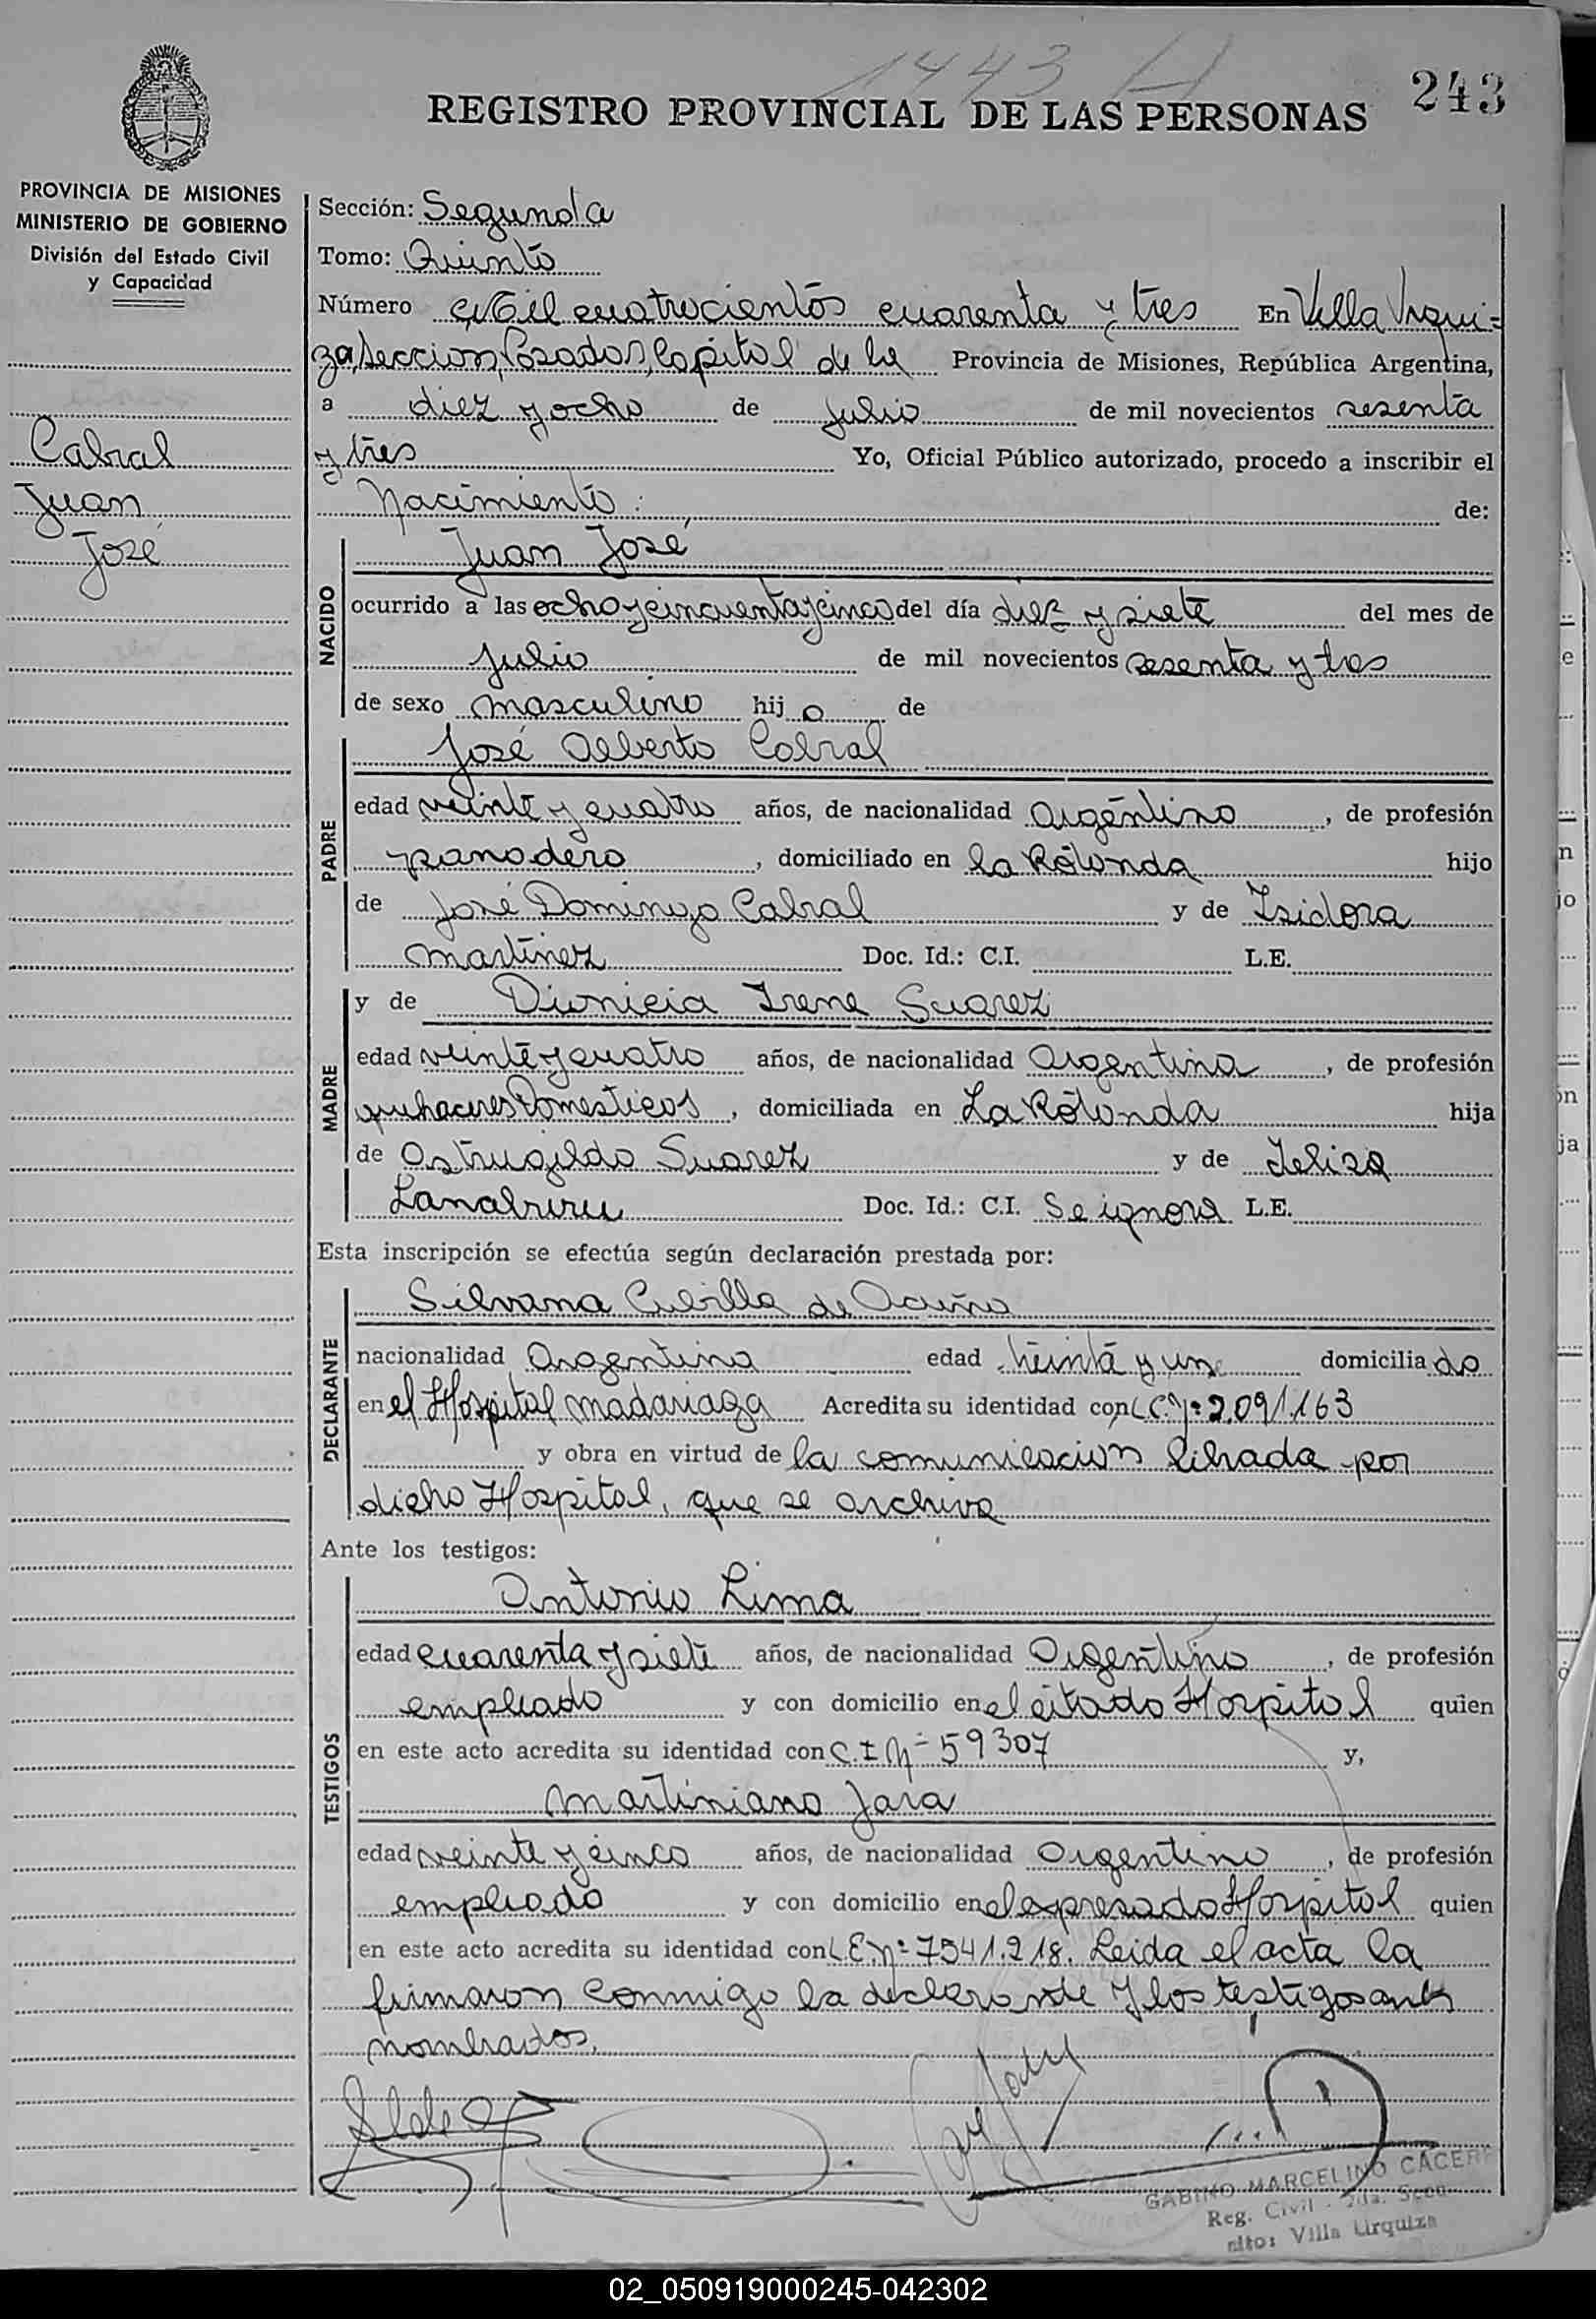 1443
243
REGISTRO PROVINCIAL DE LAS PERSONAS
PROVINCIA DE MISIONES
MINISTERIO DE GOBIERNO
División del Estado Civil
y Capacidad
Cabral
Juan
José
Sección: Segunda
Tomo: Quinto
Número Mil cuatrocientos cuarenta y tres En Villa Urqui-
za, Seccion, Posadas, Capital de la Provincia de Misiones, República Argentina,
a diez y ocho de julio de mil novecientos sesenta
y tres Yo, Oficial Público autorizado, procedo a inscribir el
Nacimiento: de:
NACIDO
Juan José
ocurrido a las ocho y cincuenta y cinco del día diez y siete del mes de
julio de mil novecientos sesenta y tres
de sexo masculino hij o de
PADRE
José Alberto Cabral
edad veinte y cuatro años, de nacionalidad argentino, de profesión
panadero, domiciliado en la Rotonda hijo
de José Domingo Cabral y de Isidora
Martinez Doc. Id.: C.I. L.E.
MADRE
y de Dionicia Irene Suarez
edad veinte y cuatro años, de nacionalidad Argentina, de profesión
quehaceres Domesticos, domiciliada en La Rotonda hija
de Astrugildo Suarez y de
Doc. Id.: C.I. Se ignora L.E.
Esta inscripción se efectúa según declaración prestada por:
DECLARANTE
Silvana Cubilla de Acuña
nacionalidad Argentina edad treinta y un domicilia do
en el Hospital Madariaga Acredita su identidad con L.C. Nº 2.091.163
y obra en virtud de la comunicacion librada por
dicho Hospital, que se archiva
Ante los testigos:
TESTIGOS
Antonio Lima
edad cuarenta y siete años, de nacionalidad Argentino, de profesión
empleado y con domicilio en el citado Hospital quien
en este acto acredita su identidad con C.I Nº 59307 y,
Martiniano Jara
edad veinte y cinco años, de nacionalidad Argentino, de profesión
empleado y con domicilio en el expresado Hospital quien
en este acto acredita su identidad con L.E. Nº 7541.218. Leida el acta la
firmaron conmigo la declarante y los testigos antes
nombrados.
GABINO MARCELINO CACERE
Reg. Civil - 2da. Secc.
Villa Urquiza
02_050919000245-042302